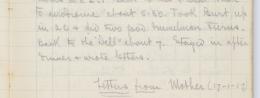 to aerodrome about 5.30. Took Burt up
in 126 & did two good Immelman turns.
Back to the "Dell" about 7. Stayed in after
dinner & wrote letters.
Letters from Mother (17-11-17)